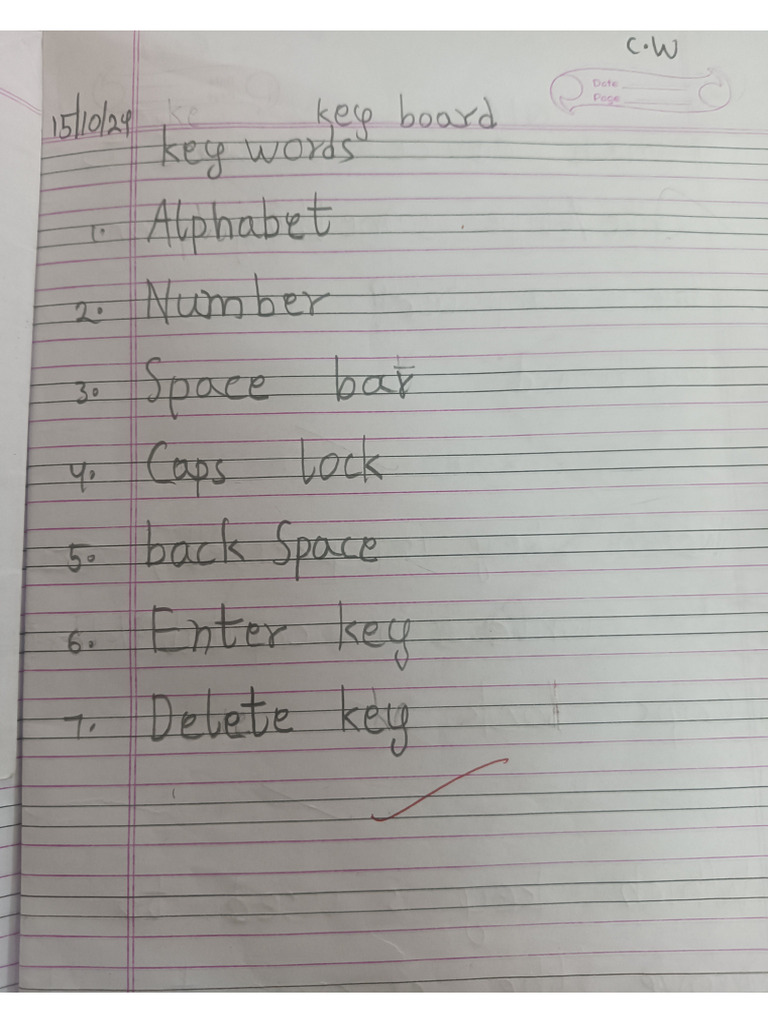 C.W
Date
Page
15/10/24 ke key board
key words
1. Alphabet
2. Number
3. Space bar
4. Caps lock
5. back Space
6. Enter key
7. Delete key